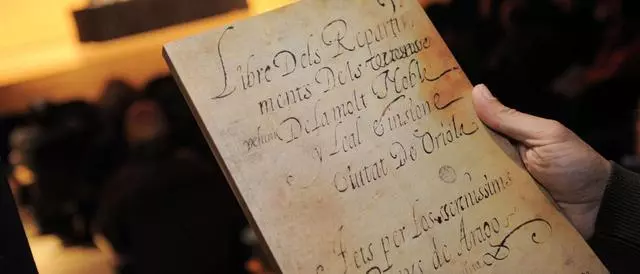 Libre Dels Reparti
ments Dels terrenesse
De la molt Noble
y Leal E insigne
Ciutat De Oriola
Fets per los serenissims
Reys de Arago